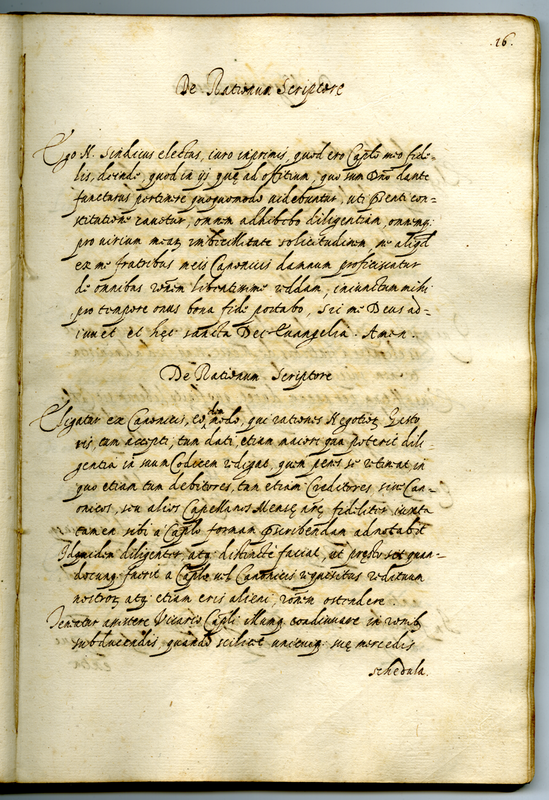 .16.
De Rationum Scriptore
Ego N. Sindicus electus, iuro inprimis, quod ero Caplo meo fide-
lis, deinde, quod in ijs quę ad offitium, quo sum Dño dante
functurus pertinere quoquomodo uidebuntur, uti pñti con-
stitutione cauetur, omnem adhibebo diligentiam, omnemq;
pro uirium mearꝫ imbecillitate solicitudinem ne aliqd
ex me fratribus meis Canonicis damnum proficiscatur
de omnibus rõnem libentissime reddam, iniunctum mihi
pro tempore onus bona fide portabo, Sic me Deus ad-
iuuet et hęc sancta Dei Euangelia. Amen.
De Rationum Scriptore
Eligatur ex Canonicis, eodem modo, qui rationes Negotiorꝫ Gesto
ris, tam accepti, tum dati, etiam maiori qua poterit dili
gentia in suum Codicem redigat, quem penes se retineat in
quo etiam tum debitores, tum etiam Creditores siue Can-
onicos, seu alios Capellanos Mensę nrę, fideliter iuxta
tamen sibi a Caplo formam pscribendam adnotabit
Idq; quidem diligenter, atq; distincte faciat, ut pręsto sit quan-
documq; fuerit a Caplo uel Canonicis requisitus redituum
nostrorꝫ atq; etiam eris alieni, rõnem ostendere
Teneatur Vicario Capli Mung coadiuuare in rõnibꝫ
subducendis quando scilicet unicuiq; suę mercedis
schedula.